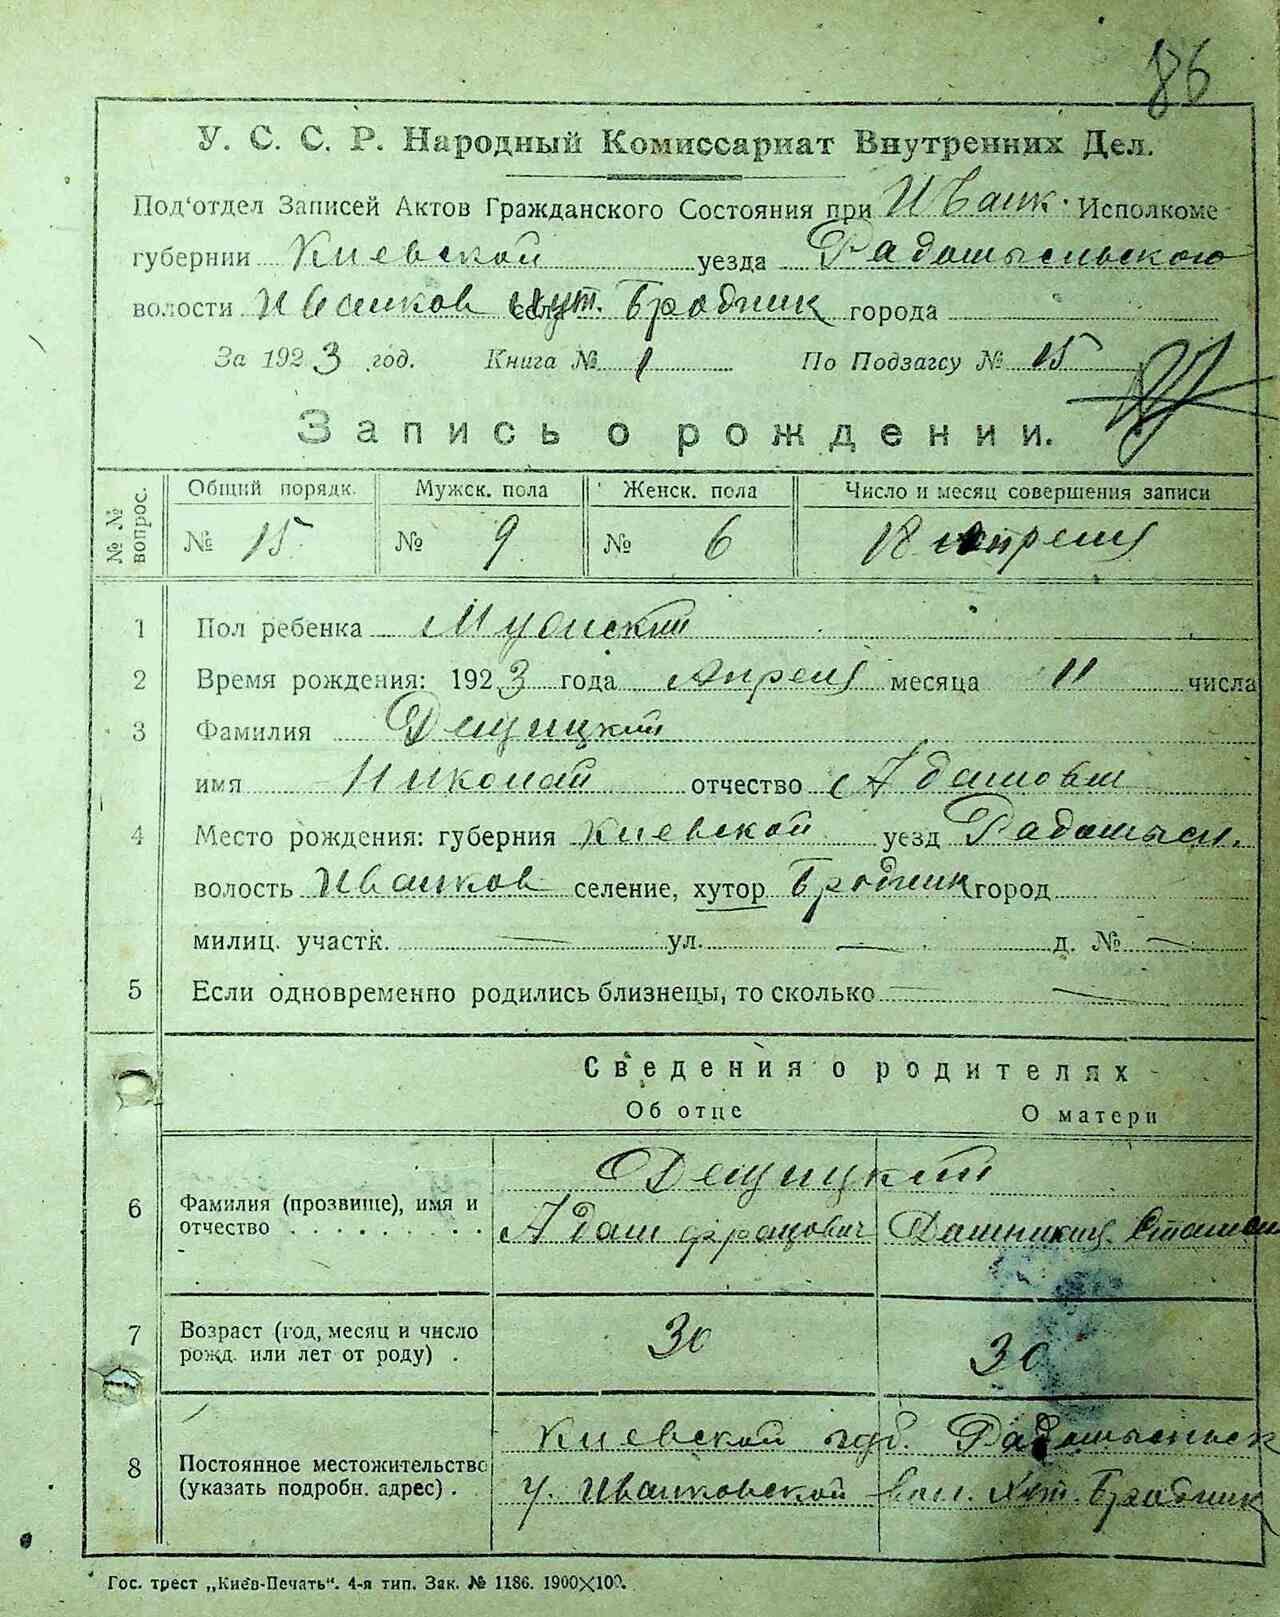 86
У. С. С. Р. Народный Комиссариат Внутренних Дел.
Под'отдел Записей Актов Гражданского Состояния при Иванк. Исполкоме
губернии Киевской уезда Радомысльского
волости Иванков села хут. Бродник города
За 1923 год. Книга № 1 По Подзагсу № 15
Запись о рождении.
№ № вопрос. Общий порядк. Мужск. пола Женск. пола Число и месяц совершения записи
№ 15 № 9 № 6 18 апреля
1 Пол ребенка Мужский
2 Время рождения: 1923 года Апреля месяца 11 числа
3 Фамилия Дещицкий
имя Николай отчество Адамович
4 Место рождения: губерния Киевской уезд Радомысл.
волость Иванков селение, хутор Бродник город
милиц. участк. — ул. — д. № —
5 Если одновременно родились близнецы, то сколько —
Сведения о родителях
Об отце О матери
Дещицкий
6 Фамилия (прозвище), имя и
отчество . . . . . . . Адам францович
7 Возраст (год, месяц и число
рожд. или лет от роду) . 30 30
Киевской губ. Радомысльск
8 Постоянное местожительство
(указать подробн. адрес) . у. Иванковской вол. Хут. Бродник
Гос. трест „Киев-Печать“. 4-я тип. Зак. № 1186. 1900×100.